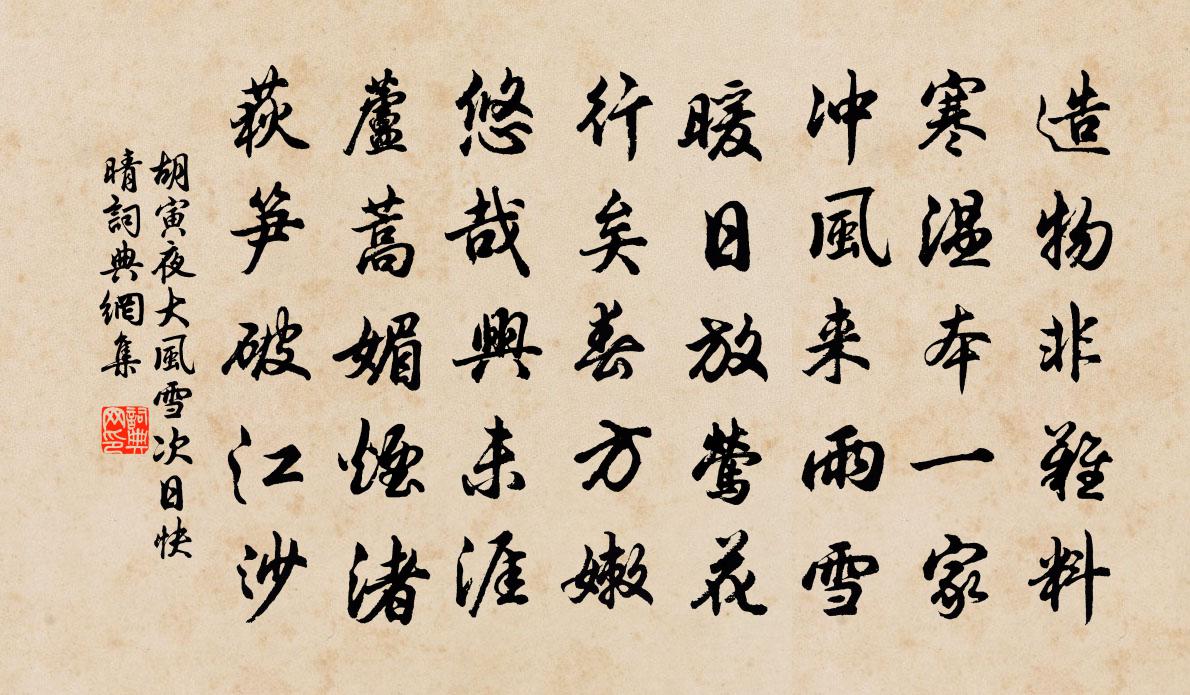 造物非難料
寒溫本一家
冲風来雨雪
暖日放鶯花
行矣春方嫩
悠哉興未涯
蘆蒿媚煙渚
荻笋破江沙
胡寅夜大風雪次日快
晴詞典網集
詞典
网印